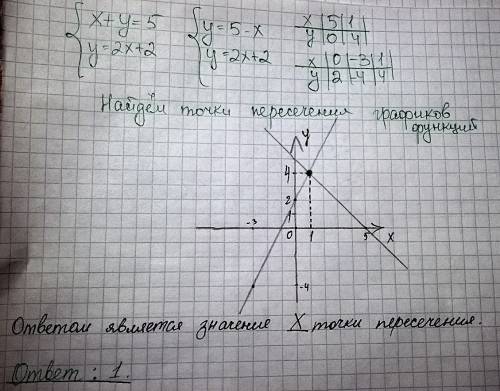 x+y=5 y=5-x x | 5 | 1
y=2x+2 y=2x+2 y | 0 | 4
x | 0 | -3 | 1
y | 2 | -4 | 4
Найдём точки пересечения графиков
функций
y
4
2
1
-3 0 1 5 x
-4
Ответом является значение X точки пересечения.
Ответ: 1.